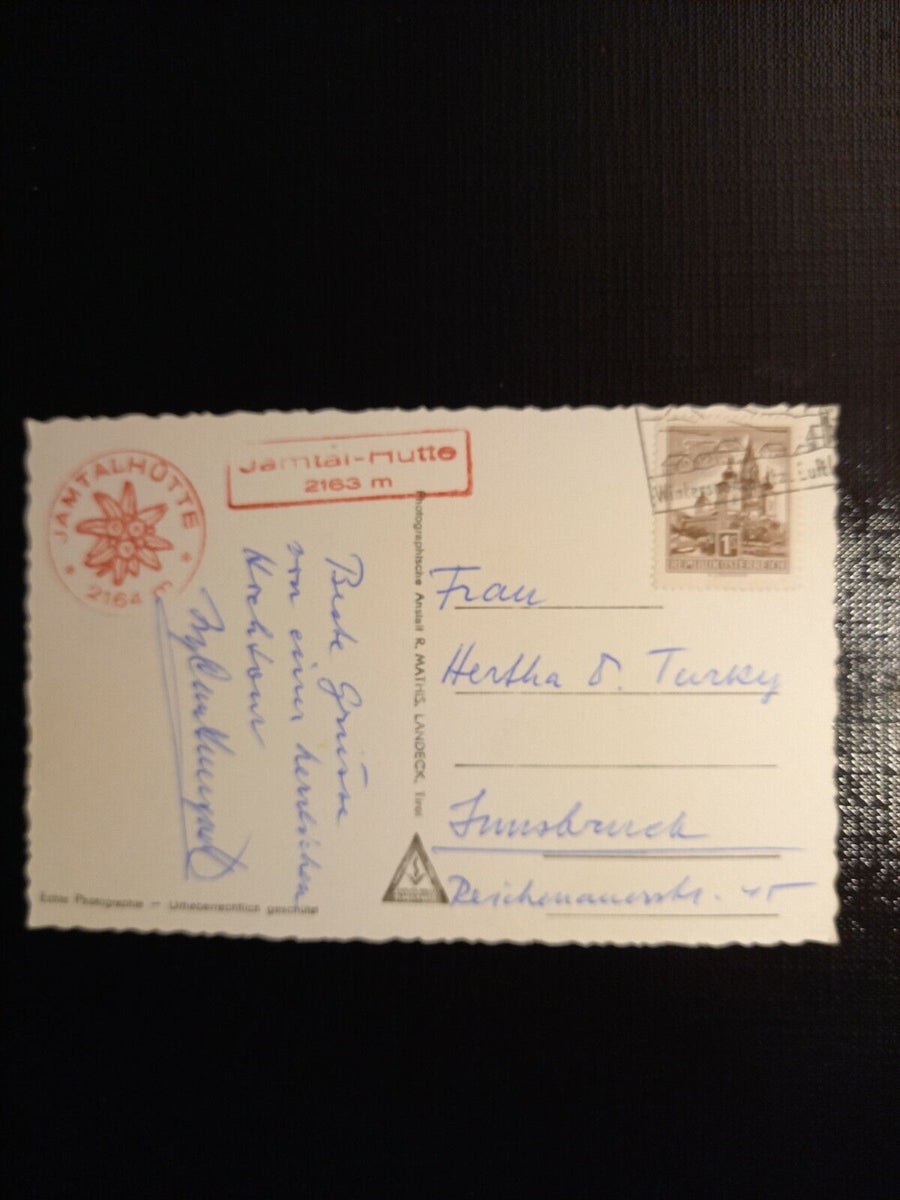 JAMTALHÜTTE
2164
Jamtal-Hütte
2163 m
Beste Grüsse
von einer herrlichen
Hochtour
Photographische Anstalt R. MATHIS, LANDECK, Tirol
Echte Photographie — Urheberrechtlich geschützt
1 S
REPUBLIK ÖSTERREICH
Frau
Hertha Turky
Innsbruck
Reichenauerstr.